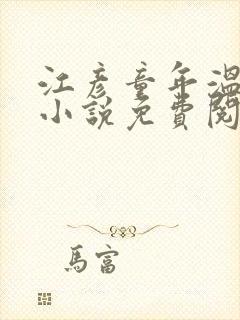 江彥童年溫
小說免費閱
馬富